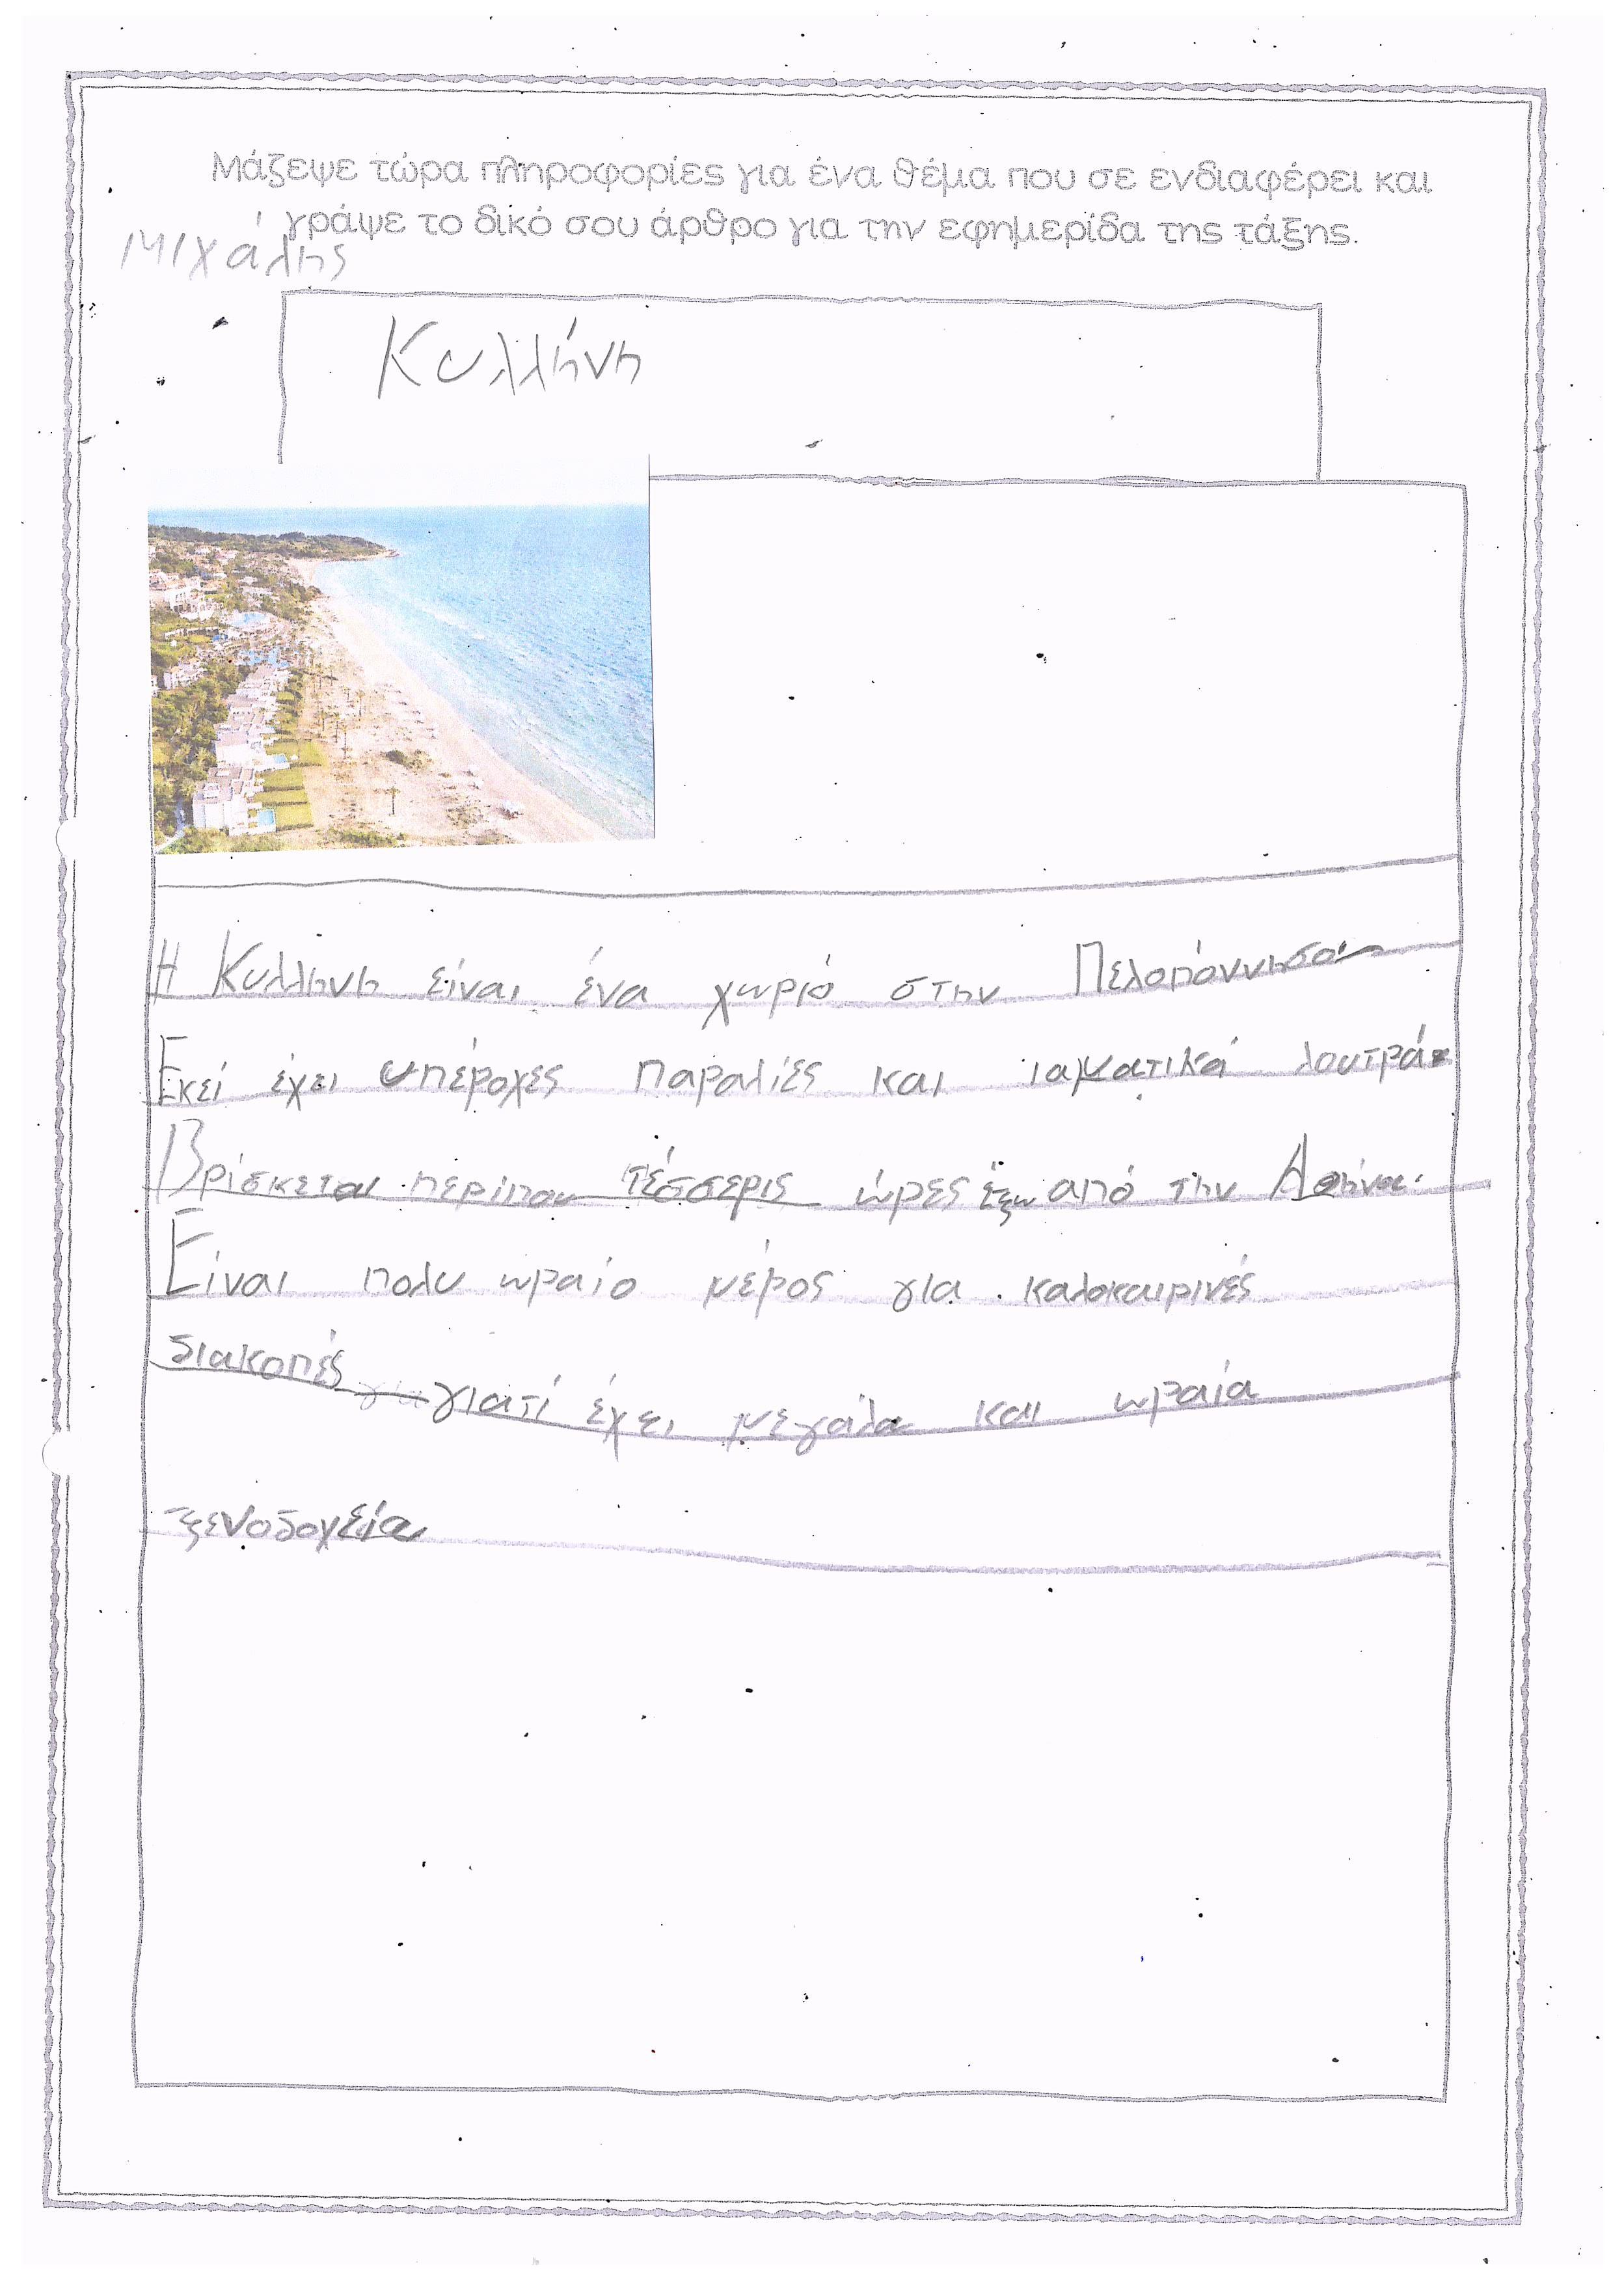 Μάζεψε τώρα πληροφορίες για ένα θέμα που σε ενδιαφέρει και
γράψε το δικό σου άρθρο για την εφημερίδα της τάξης.
Μιχάλης
Κυλλήνη
Η Κυλλήνη είναι ένα χωριό στην Πελοπόννησο
Εκεί έχει υπέροχες παραλίες και ιαματικά λουτρά.
Βρίσκεται περίπου τέσσερις ώρες έξω από την Αθήνα.
Είναι πολυ ωραίο μέρος για καλοκαιρινές
διακοπές γιατί έχει μεγάλα και ωραία
ξενοδοχεία